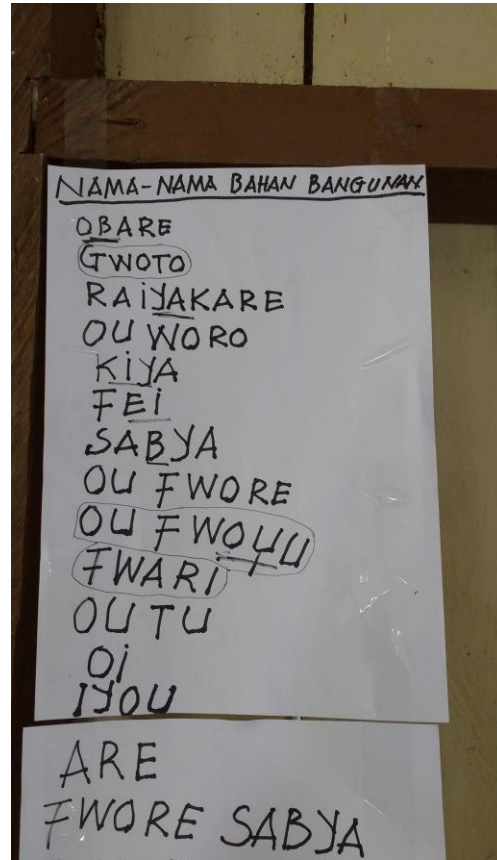 NAMA-NAMA BAHAN BANGUNAN
OBARE
GWOTO
RAIYAKARE
OU WORO
KIYA
FEI
SABYA
OU FWORE
OU FWOYU
FWARI
OU TU
OI
IYOU
ARE
FWORE SABYA